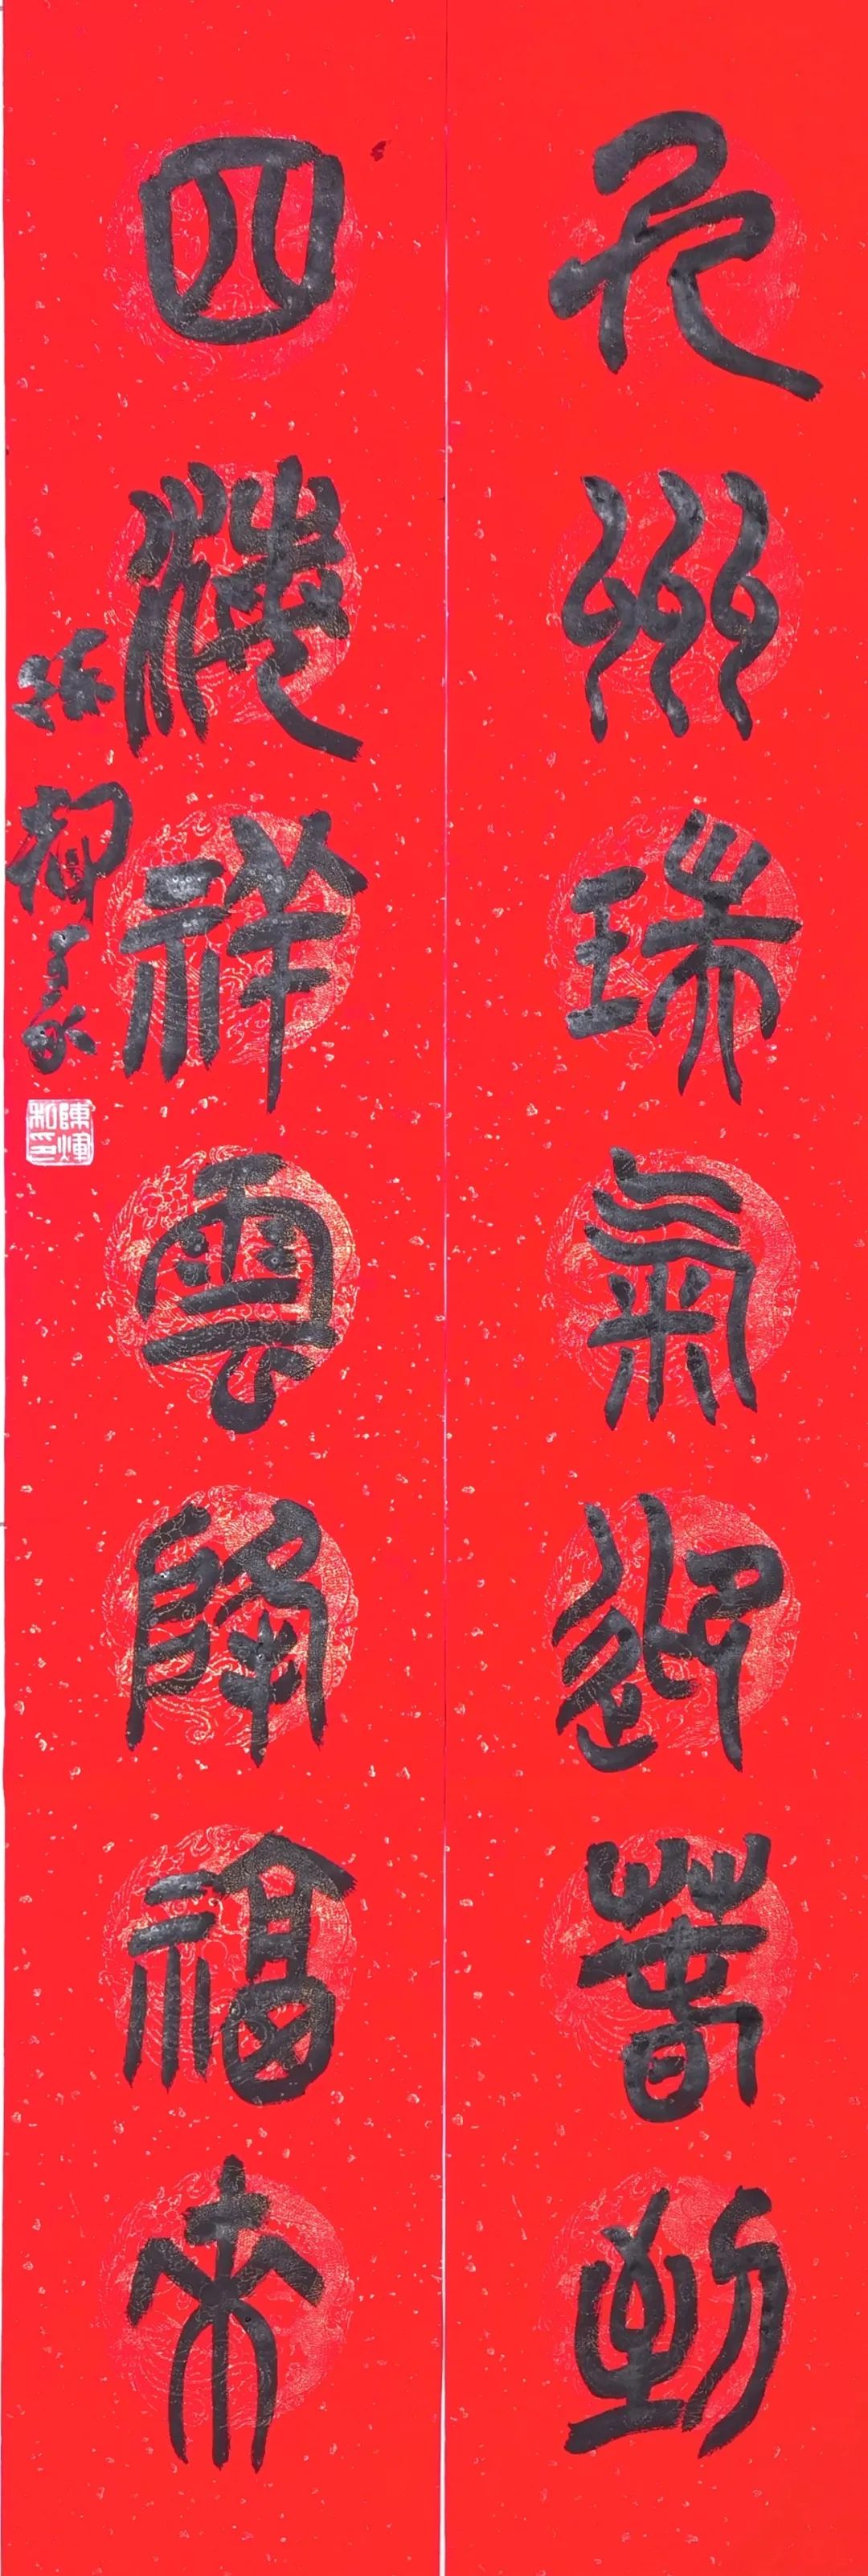 九州瑞氣迎春到
四海祥雲降福來
陳煇和印